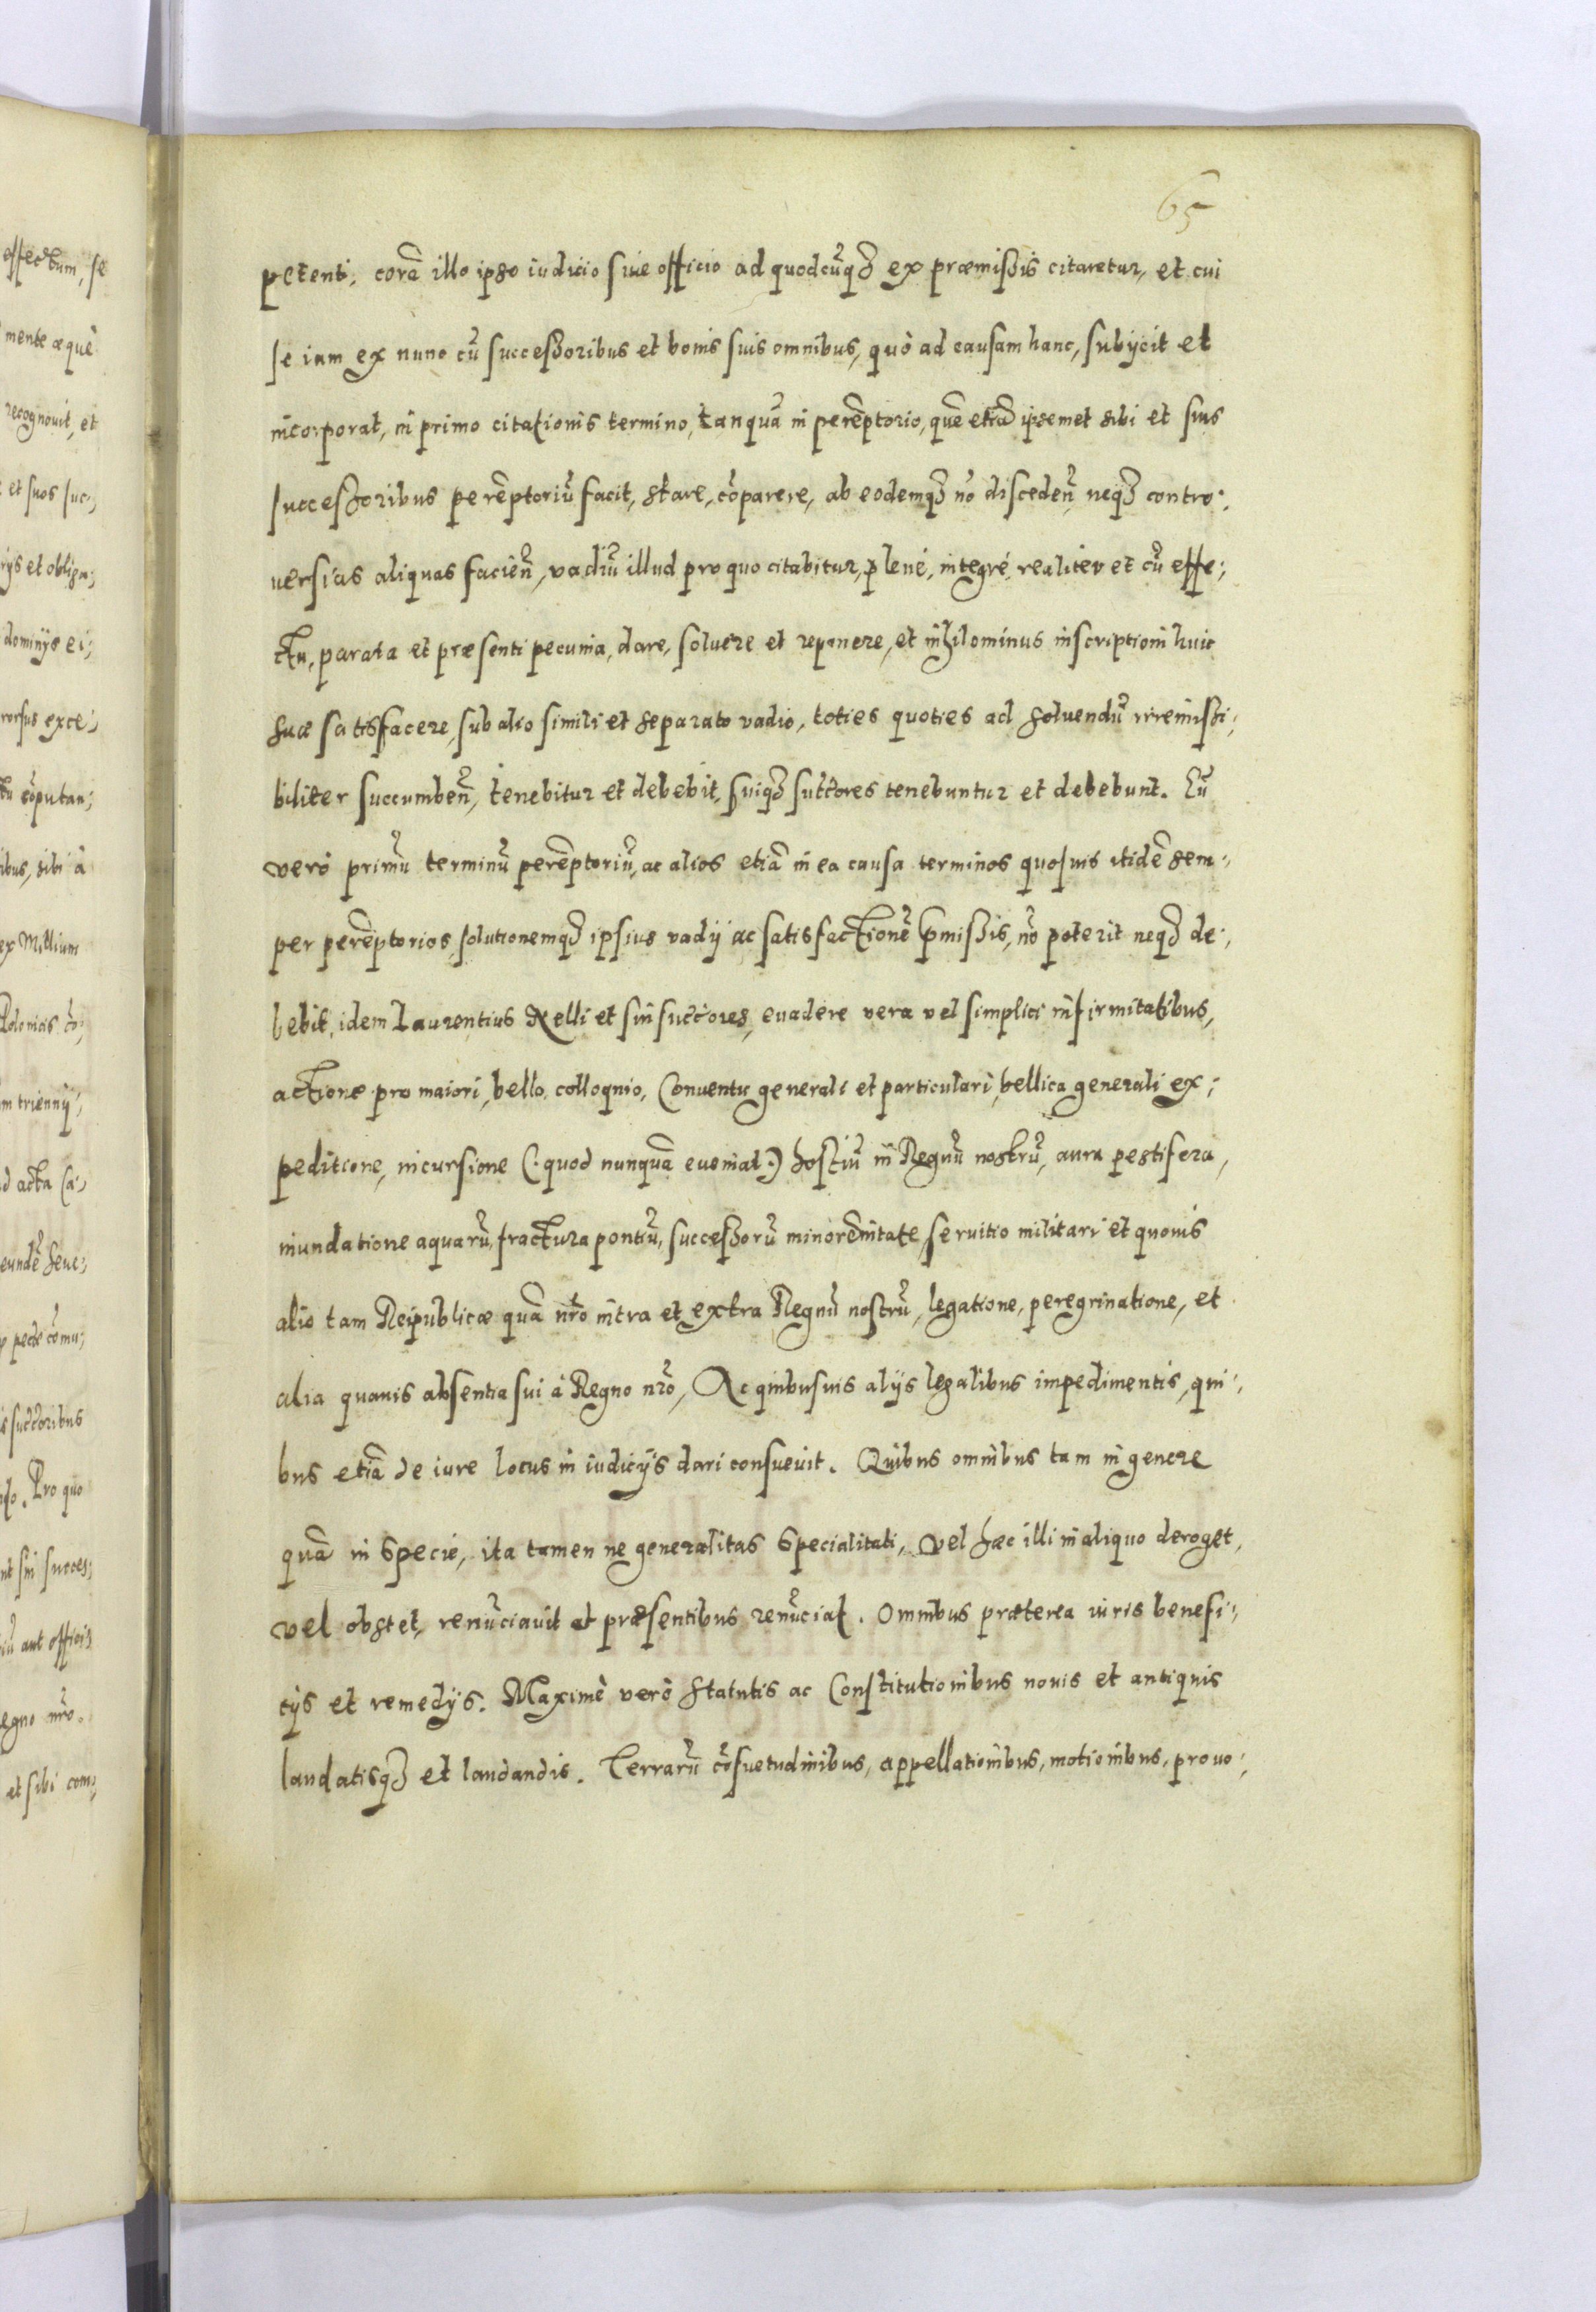 65
petenti, corã illo ipso iudicio siue officio ad quodcũq3 ex præmissis citaretur, et cui
se iam ex nunc cũ successoribus et bonis suis omnibus, quò ad causam hanc, subijcit et
incorporat, in primo citationis termino, tanquã in perẽptorio, quẽ etiã ipsemet sibi et suis
successoribus perẽptoriũ facit, stare, cõparere, ab eodemq3 nõ disceden̄, neq3 contro;
uersias aliquas facien̄, vadiũ illud pro quo citabitur, plenè, integrè, realiter et cũ effe;
ctu, parata et præsenti pecunia, dare, soluere et reponere, et nihilominus inscriptioni huic
suæ satisfacere, sub alio simili et separato vadio, toties quoties ad soluendũ irremissi;
biliter succumben̄, tenebitur et debebit, suiq3 succ̃ores tenebuntur et debebunt. Eũ
verò primũ terminũ perẽptoriũ, ac alios etiã in ea causa terminos quosuis itidẽ sem;
per perẽptorios, solutionemq3 ipsius vadij ac satisfactionẽ p̃missis, nõ poterit neq3 de;
bebit, idem Laurentius Nelli et sui succ̃ores, euadere vera vel simplici infirmitatibus,
actione pro maiori, bello, colloquio, Conuentu generali et particulari, bellica generali ex;
peditione, incursione (: quod nunquã eueniat :) hostiũ in Regnũ nostrũ, aura pestifera,
inundatione aquarũ, fractura pontiũ, successorũ minorẽnitate, seruitio militari et quouis
alio tam Reipublicæ quã nr̃o intra et extra Regnũ nostrũ, legatione, peregrinatione, et
alia quauis absentia sui à Regno nr̃o, Ac quibusuis alijs legalibus impedimentis, qui;
bus etiã de iure locus in iudicijs dari consueuit. Quibus omnibus tam in genere
quã in specie, ita tamen ne generalitas specialitati, vel hæc illi in aliquo deroget,
vel obstet, renũciauit et præsentibus renũciat. Omnibus præterea iuris benefi;
cijs et remedijs. Maximè verò statutis ac Constitutionibus nouis et antiquis
laudatisq3 et laudandis. Terrarũ cõsuetudinibus, appellationibus, motionibus, prouo;